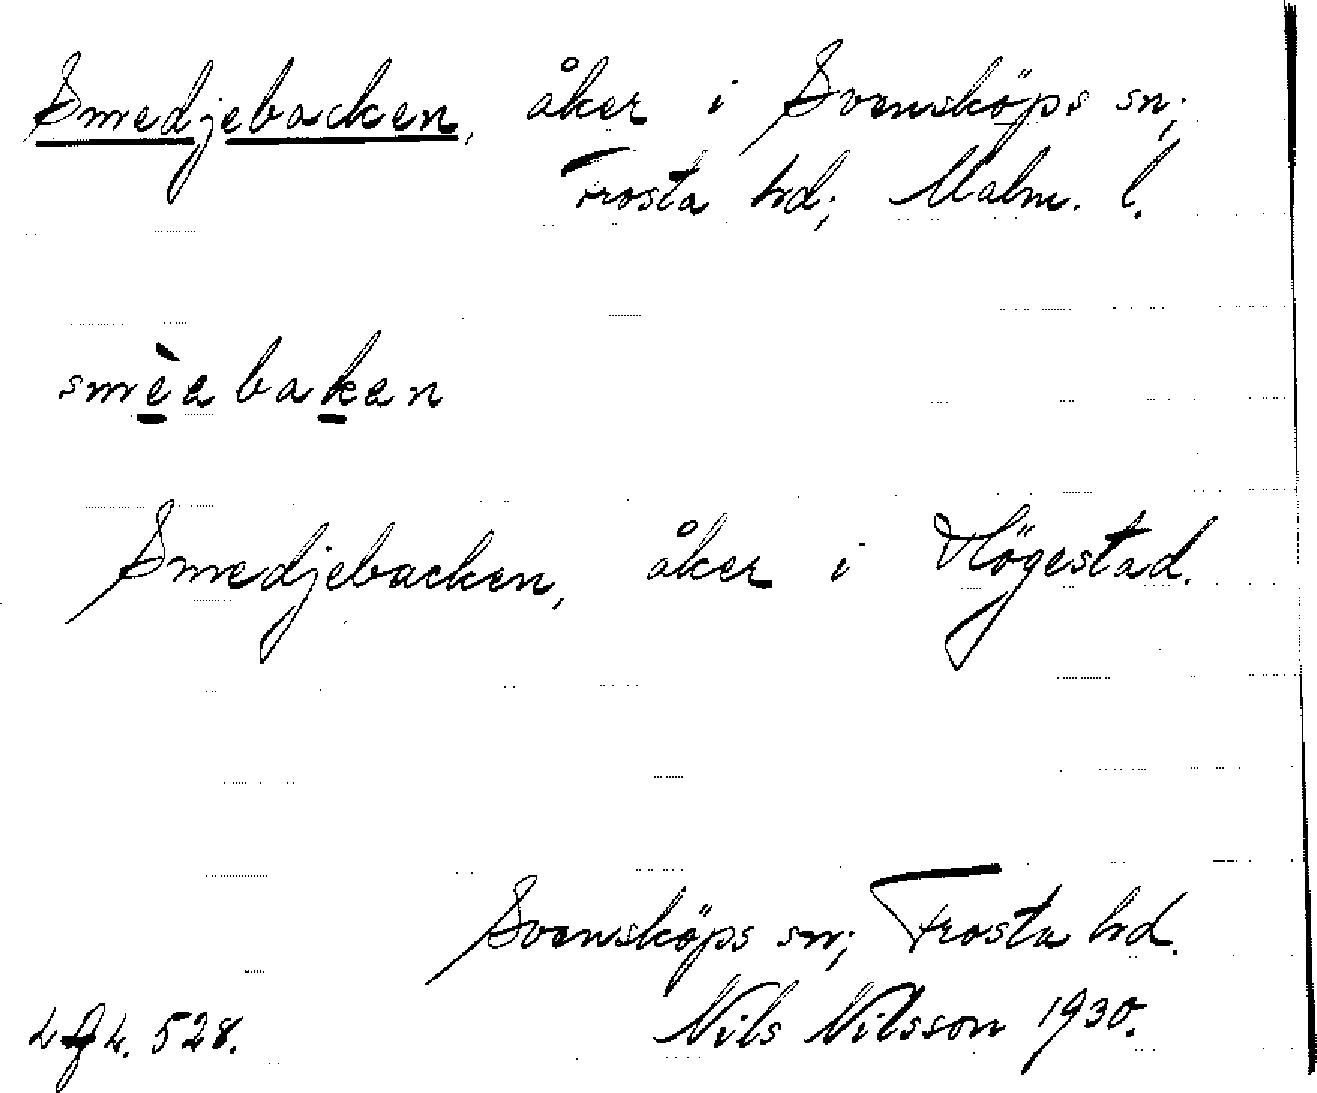 Smedjebacken, åker i Svensköps sn;
Frosta hd; Malm. l.
smèebaken
Smedjebacken, åker i Högestad.
Svensköps sn; Frosta hd.
Nils Nilsson 1930.
528.